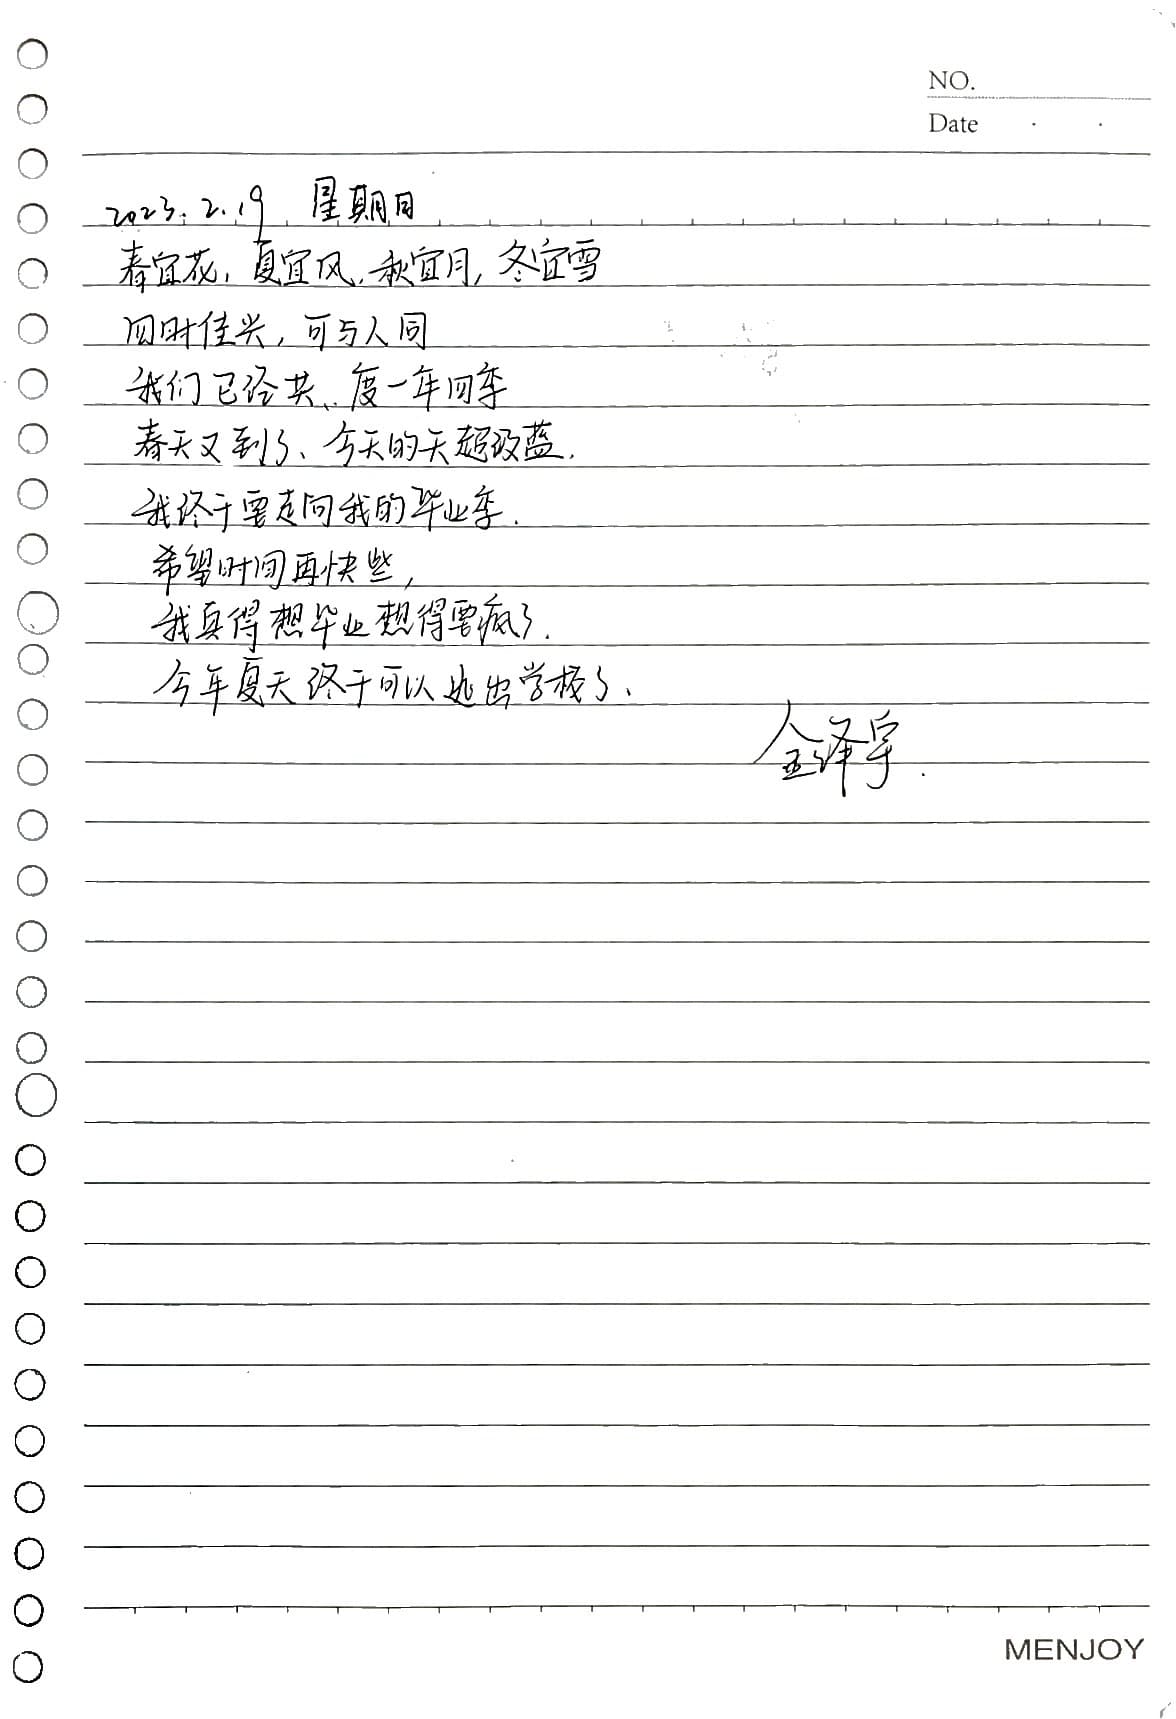 NO.
Date
2023.2.19 星期日
春宜花,夏宜风,秋宜月,冬宜雪
四时佳兴,可与人同
我们已经共、度一年四季
春天又到了、今天的天超级蓝.
我终于要走向我的毕业季.
希望时间再快些,
我真得想毕业想得要疯了.
今年夏天终于可以逃出学校了、
金泽宇.
MENJOY